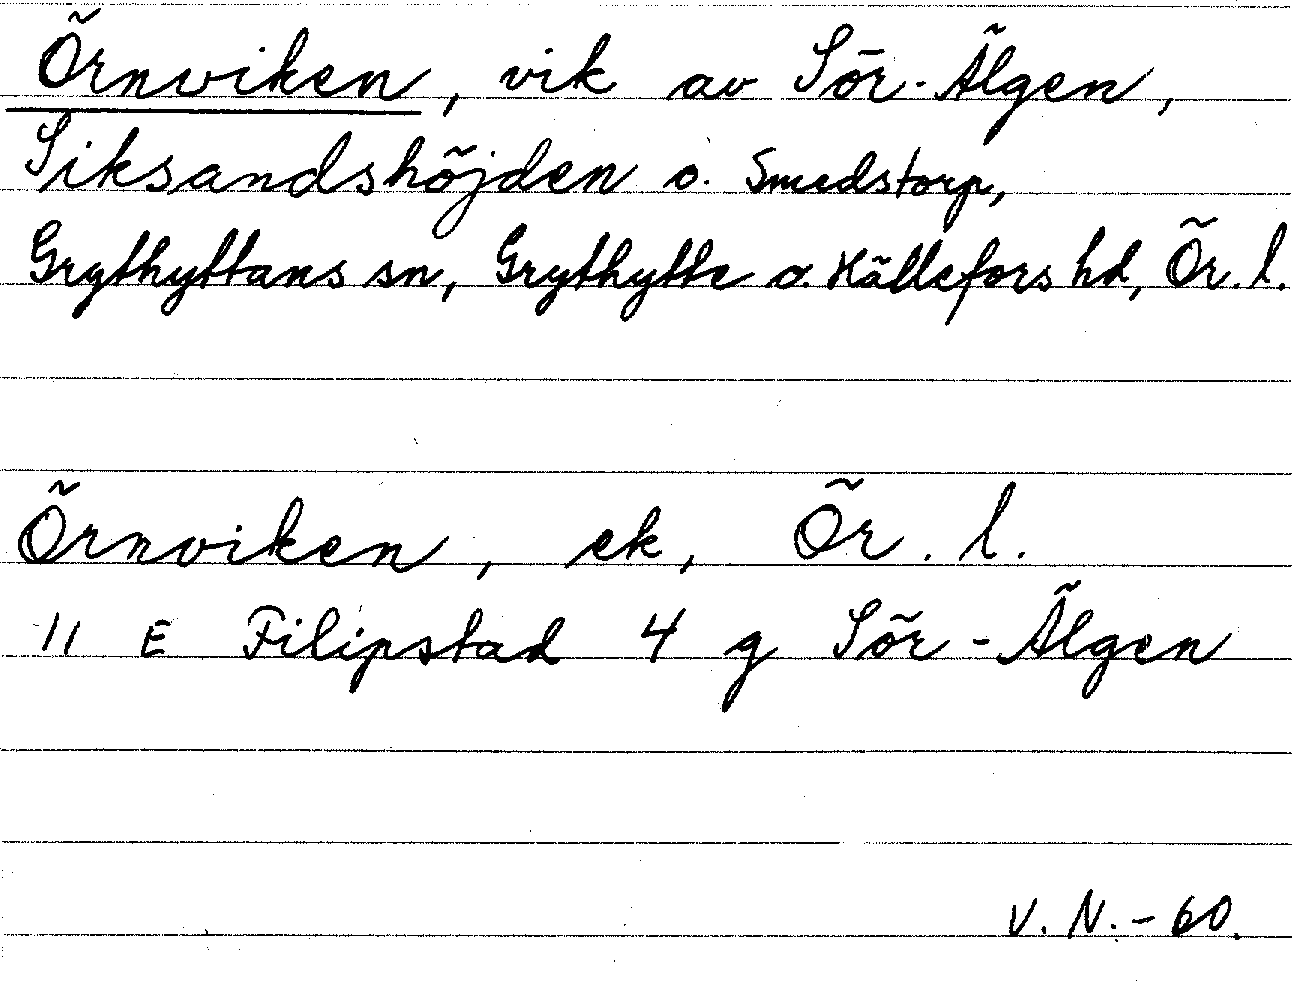 Örnviken, vik av Sör-Älgen,
Siksandshöjden o. Smedstorp,
Grythyttans sn, Grythytte o. Hällefors hd, Ör. l.
Örnviken, ek, Ör. l.
11 E Filipstad 4 g Sör-Älgen
V. N. - 60.